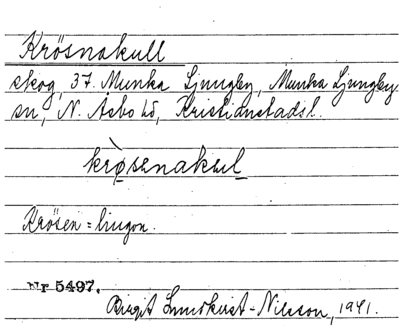 Krösnakull
skog, 37. Munka Ljungby, Munka Ljungby
sn, N. Åsbo hd, Kristianstads l.
krø̀senakul
Krösen = lingon.
Nr 5497.
Birgit Lundkvist-Nilsson, 1941.